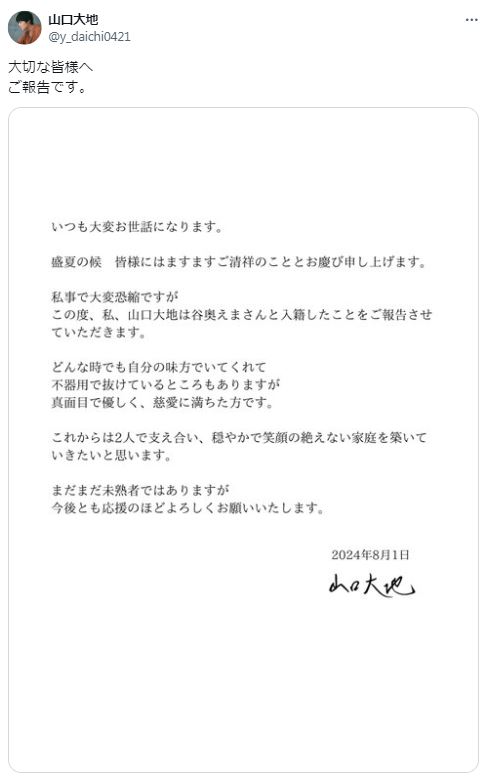 山口大地
@y_daichi0421
大切な皆様へ
ご報告です。
いつも大変お世話になります。
盛夏の候　皆様にはますますご清祥のこととお慶び申し上げます。
私事で大変恐縮ですが
この度、私、山口大地は谷奥えまさんと入籍したことをご報告させ
ていただきます。
どんな時でも自分の味方でいてくれて
不器用で抜けているところもありますが
真面目で優しく、慈愛に満ちた方です。
これからは2人で支え合い、穏やかで笑顔の絶えない家庭を築いて
いきたいと思います。
まだまだ未熟者ではありますが
今後とも応援のほどよろしくお願いいたします。
2024年8月1日
山口大地